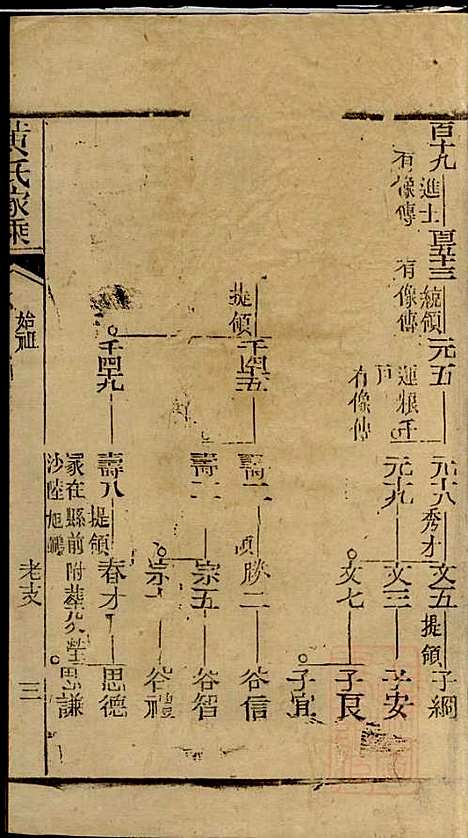 百十九 進士 有像傳 百五十三 統領 有像傳 元五 元十八 秀才 文五 提領 子綱
運粮千戶 有像傳 元十九 文三 子安
文七 子良
子宜
提領 千四五 壽一 貞 勝二 谷信
壽二 宗五 谷智
谷禮
千四九 壽八 提領 春才 思德
冢在縣前附葬父塋 思謙
黃氏家乘 始祖 老支 三